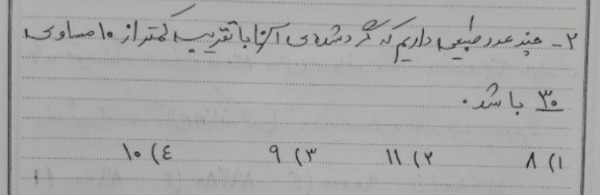 ۲- چند عدد طبیعی داریم که گرد شده‌ی آنها با تقریب کمتر از ۱۰ مساوی
۳۰ باشد.
۱) ۸ ۲) ۱۱ ۳) ۹ ٤) ۱۰